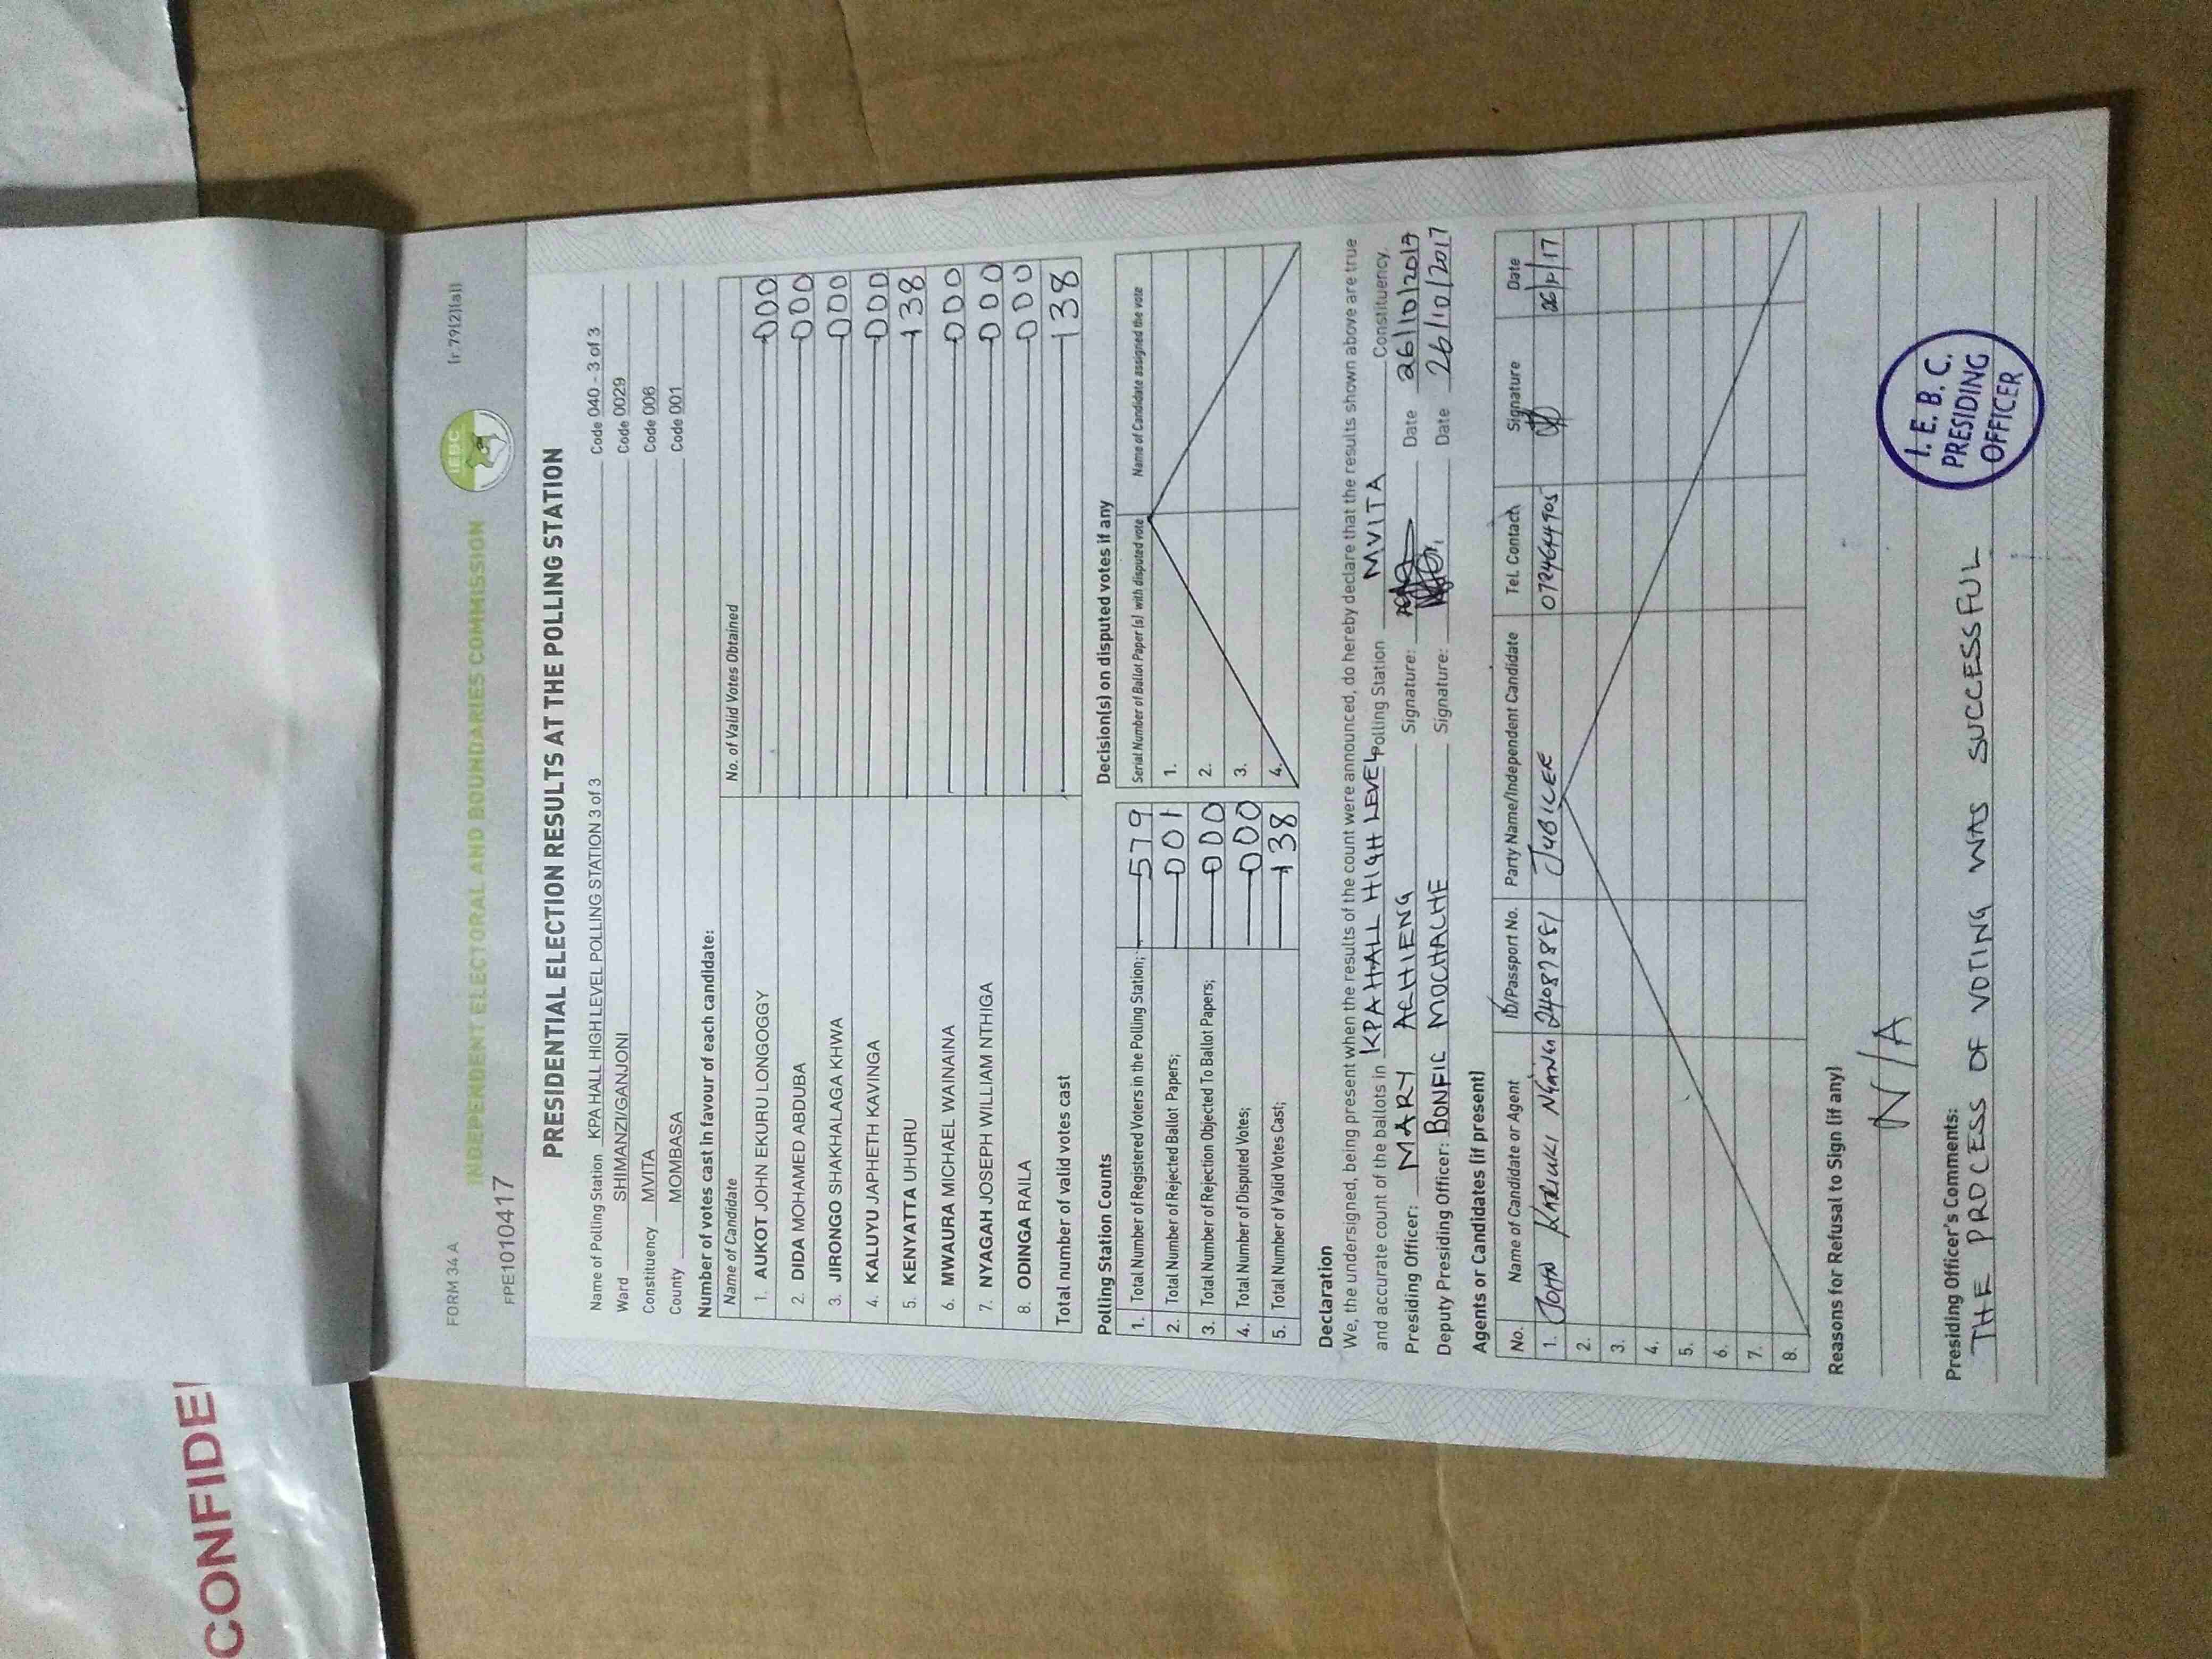 CONFIDE
FORM 34 A
(r.79(2)(a))
INDEPENDENT ELECTORAL AND BOUNDARIES COMMISSION
IEBC
FPE1010417
PRESIDENTIAL ELECTION RESULTS AT THE POLLING STATION
Name of Polling Station KPA HALL HIGH LEVEL POLLING STATION 3 of 3 Code 040 - 3 of 3
Ward SHIMANZI/GANJONI Code 0029
Constituency MVITA Code 006
County MOMBASA Code 001
Number of votes cast in favour of each candidate:
Name of Candidate No. of Valid Votes Obtained
1. AUKOT JOHN EKURU LONGOGGY 000
2. DIDA MOHAMED ABDUBA 000
3. JIRONGO SHAKHALAGA KHWA 000
4. KALUYU JAPHETH KAVINGA 000
5. KENYATTA UHURU 138
6. MWAURA MICHAEL WAINAINA 000
7. NYAGAH JOSEPH WILLIAM NTHIGA 000
8. ODINGA RAILA 000
Total number of valid votes cast 138
Polling Station Counts
1. Total Number of Registered Voters in the Polling Station; 579
2. Total Number of Rejected Ballot Papers; 001
3. Total Number of Rejection Objected To Ballot Papers; 000
4. Total Number of Disputed Votes; 000
5. Total Number of Valid Votes Cast; 138
Decision(s) on disputed votes if any
Serial Number of Ballot Paper (s) with disputed vote Name of Candidate assigned the vote
1.
2.
3.
4.
Declaration
We, the undersigned, being present when the results of the count were announced, do hereby declare that the results shown above are true
and accurate count of the ballots in KPA HALL HIGH LEVEL Polling Station MVITA Constituency.
Presiding Officer: MARY ACHIENG Signature: Date 26/10/2017
Deputy Presiding Officer: BONFIC MOCHACHE Signature: Date 26/10/2017
Agents or Candidates (if present)
No. Name of Candidate or Agent ID/Passport No. Party Name/Independent Candidate Tel. Contact Signature Date
1. JOHN KARIUKI 24087881 JUBILEE 0724644905 26/10/17
2.
3.
4.
5.
6.
7.
8.
Reasons for Refusal to Sign (if any)
N/A
Presiding Officer's Comments:
THE PROCESS OF VOTING WAS SUCCESSFUL
I. E. B. C.
PRESIDING
OFFICER